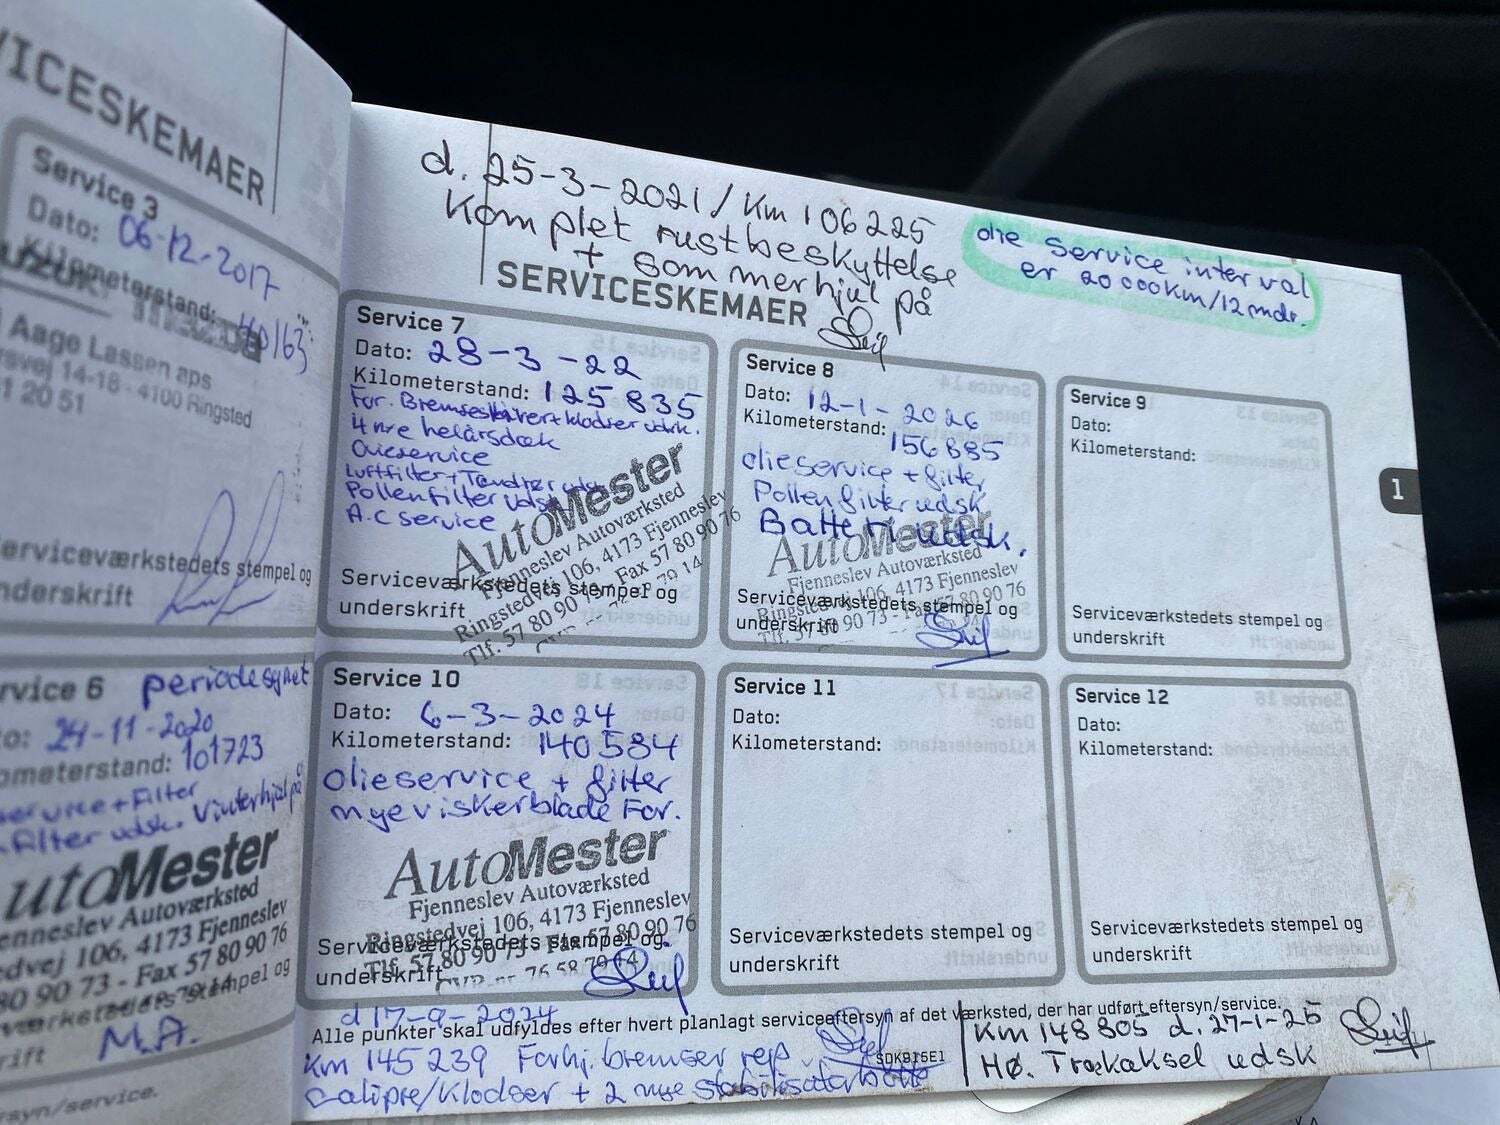 VICESKEMAER
Service 3
Dato: 06-12-2017
Kilometerstand:
40163
Aage Lassen aps
14-18 - 4100 Ringsted
stempel og
underskrift
Service 6 periodesynet
24-11-2020
101723
+ Filter
Filter udsk. Vinterhjul på
AutoMester
Fjenneslev Autoværksted
106, 4173 Fjenneslev
90 73 - Fax 57 80 90 76
stempel og
M.A.
d. 25-3-2021 / Km 106225
Komplet rustbeskyttelse
+ sommerhjul på
olie service interval
er 20000km/12mdr.
SERVICESKEMAER
Service 7
Dato: 28-3-22
Kilometerstand: 125835
For. Bremseskiver + klodser udsk.
4 nye helårsdæk
Olieservice
Luftfilter + Tændrør uds
Pollenfilter udsk
A.C service
AutoMester
Fjenneslev Autoværksted
Ringstedvej 106, 4173 Fjenneslev
Tlf. 57 80 90 73 - Fax 57 80 90 76
Serviceværkstedets stempel og
underskrift
Service 8
Dato: 12-1-2026
Kilometerstand: 156885
olieservice + filter
Pollenfilter udsk
Batteri udsk.
AutoMester
Fjenneslev Autoværksted
Ringstedvej 106, 4173 Fjenneslev
Tlf. 57 80 90 73 - Fax 57 80 90 76
Serviceværkstedets stempel og
underskrift
Service 9
Dato:
Kilometerstand:
Serviceværkstedets stempel og
underskrift
1
Service 10
Dato: 6-3-2024
Kilometerstand: 140584
olieservice + filter
nye viskerblade For.
AutoMester
Fjenneslev Autoværksted
Ringstedvej 106, 4173 Fjenneslev
Tlf. 57 80 90 73 - Fax 57 80 90 76
CVR-nr. 76 58 79 14
Serviceværkstedets stempel og
underskrift
Service 11
Dato:
Kilometerstand:
Serviceværkstedets stempel og
underskrift
Service 12
Dato:
Kilometerstand:
Serviceværkstedets stempel og
underskrift
Alle punkter skal udfyldes efter hvert planlagt serviceeftersyn af det værksted, der har udført eftersyn/service.
d 17-9-2024
Km 145239 Forhj. bremser rep
calipre/Klodser + 2 nye
SDK915E1
Km 148805 d. 27-1-25
HØ. Trækaksel udsk